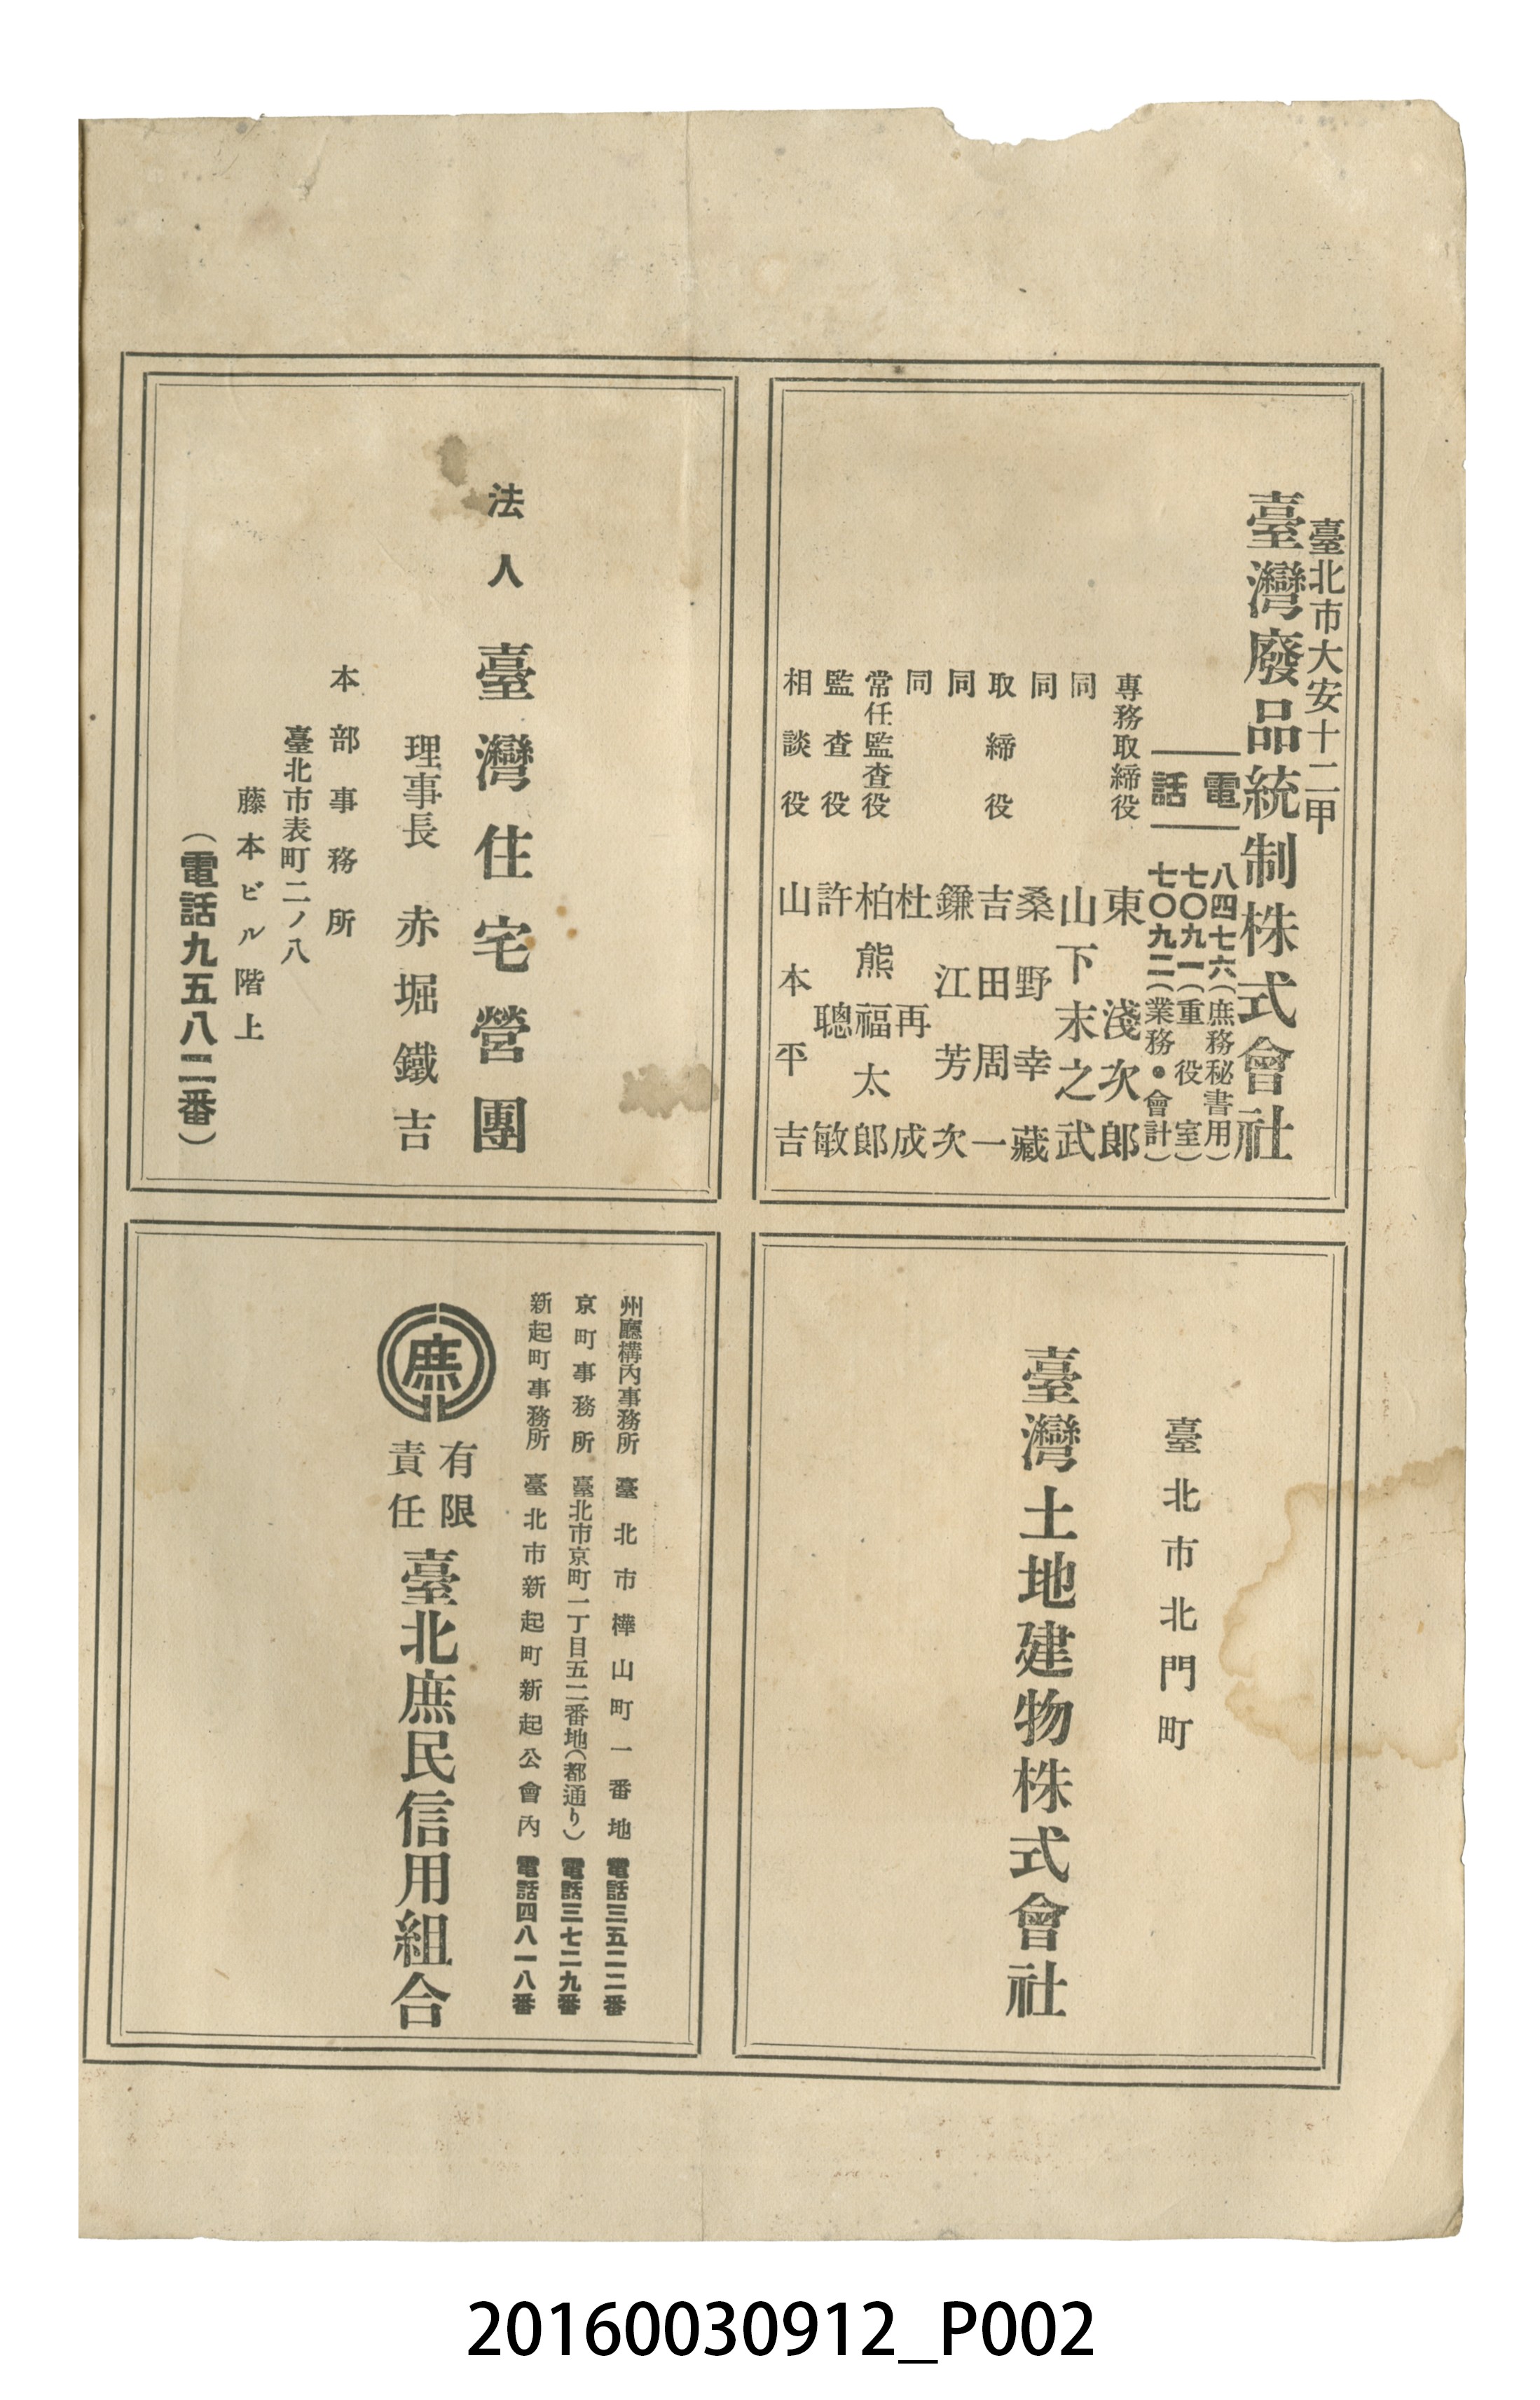 臺北市大安十二甲
臺灣廢品統制株式會社
電話
八四七六(庶務秘書用)
七〇九一(重役室)
七〇九二(業務・會計)
專務取締役 東淺次郎
同 山下末之武
同 桑野幸藏
取締役 吉田周一
同 鎌江芳次
同 杜再成
常任監査役 柏熊福太郎
監査役 許聰敏
相談役 山本平吉
法人 臺灣住宅營團
理事長 赤堀鐵吉
本部事務所
臺北市表町二ノ八
藤本ビル階上
(電話九五八二番)
臺北市北門町
臺灣土地建物株式會社
州廳構内事務所 臺北市樺山町一番地 電話三五二二番
京町事務所 臺北市京町一丁目五二番地(都通り) 電話三七二九番
新起町事務所 臺北市新起町新起公會内 電話四八一八番
庶
有限責任 臺北庶民信用組合
20160030912_P002